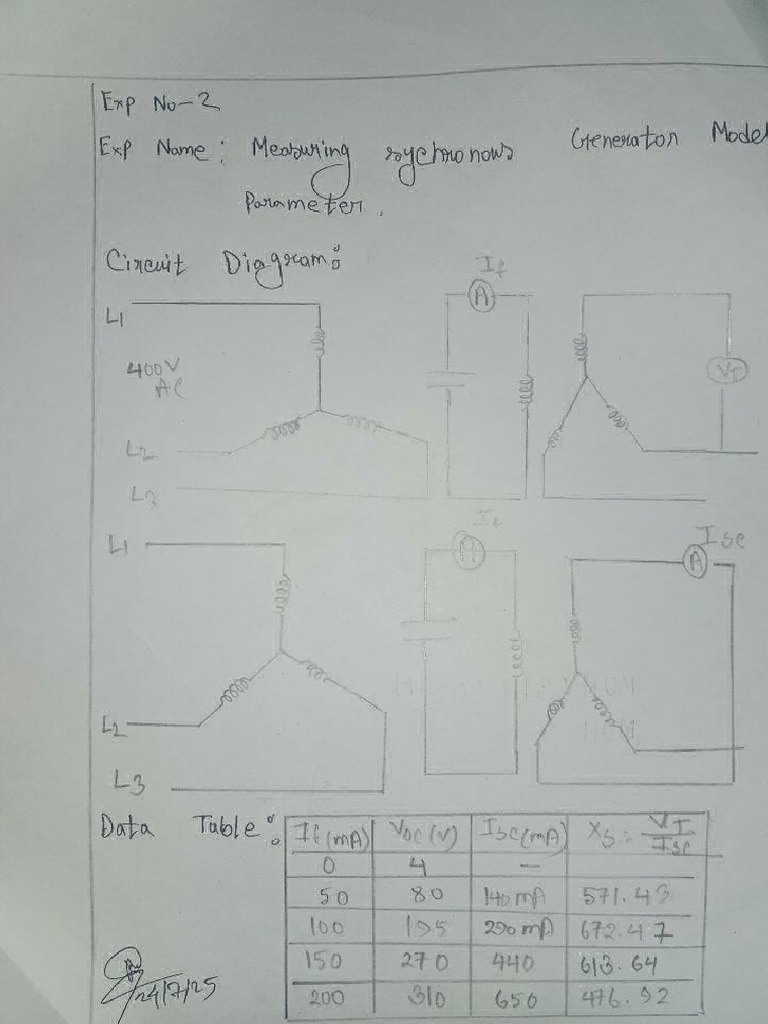 Exp No-2
Exp Name: Measuring sychronous Generator Model
Parameter.
Circuit Diagram:
If
A
L1
400V
AC
VT
L2
L3
If
A
Isc
A
L1
L2
L3
Data Table:
If (mA) Voc (V) Isc (mA) Xs = VT/Isc
0 4 -
50 80 140 mA 571.43
100 195 290 mA 672.47
150 270 440 613.64
200 310 650 476.92
24/7/25